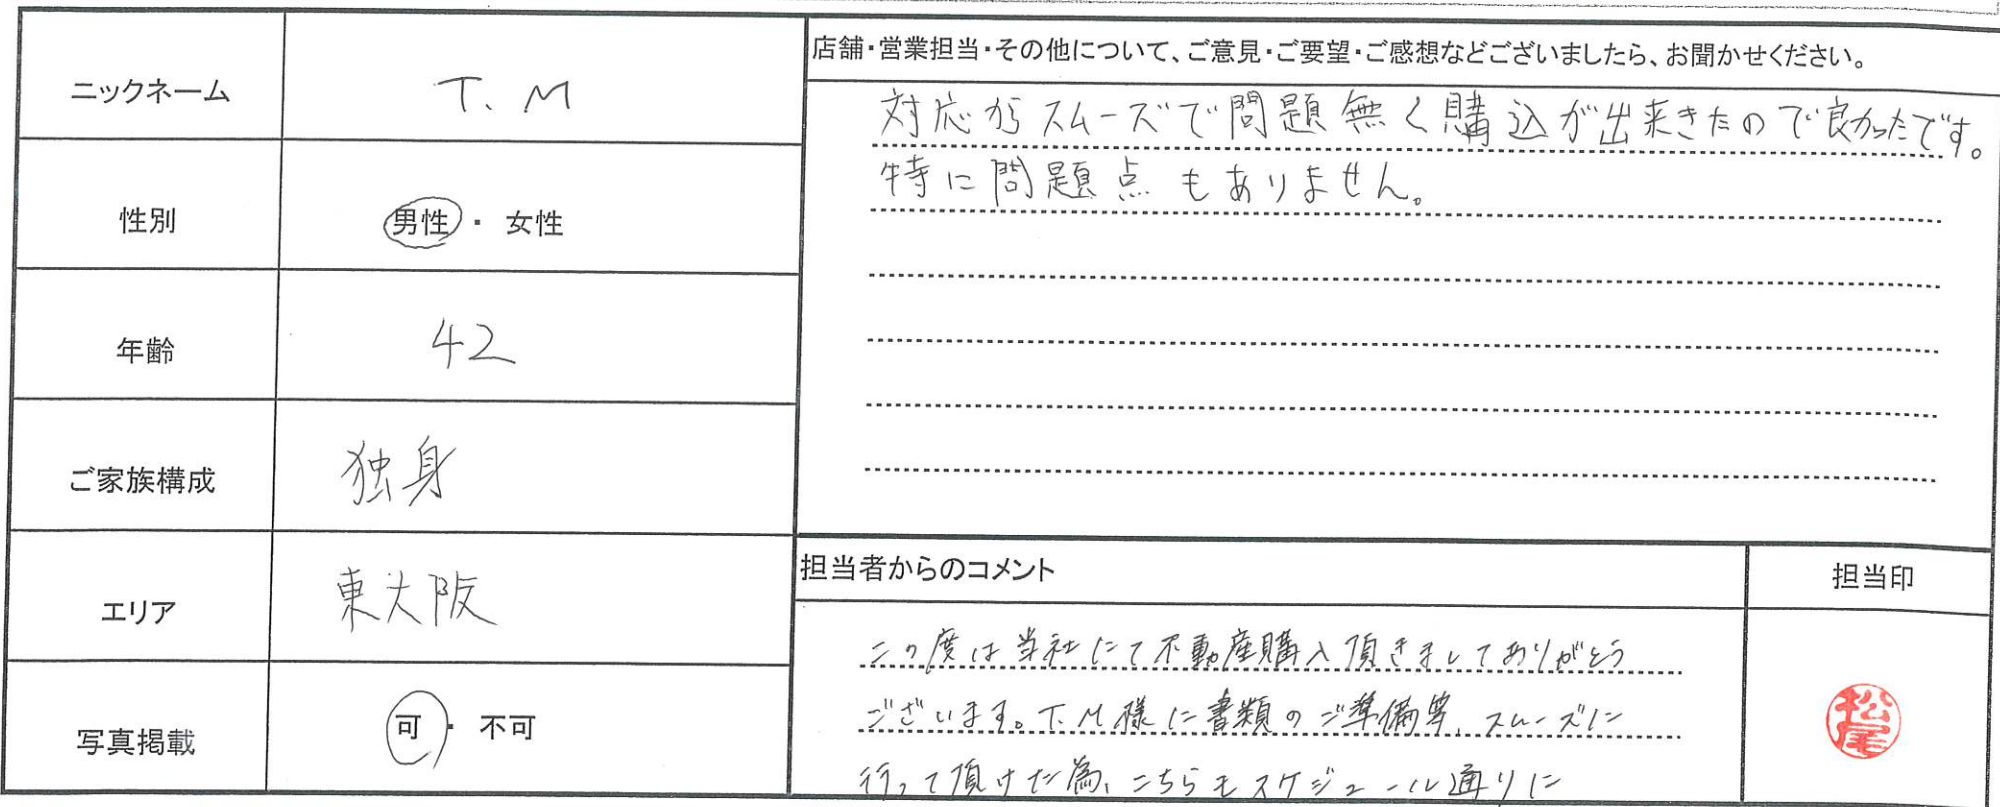 ニックネーム
T.M
性別
男性・女性
年齢
42
ご家族構成
独身
エリア
東大阪
写真掲載
可・不可
店舗・営業担当・その他について、ご意見・ご要望・ご感想などございましたら、お聞かせください。
対応からスムーズで問題無く購込が出来きたので良かったです。
特に問題点もありません。
担当者からのコメント
この度は当社にて不動産購入頂きましてありがとう
ございます。T.M様に書類のご準備等、スムーズに
行って頂けた為、こちらもスケジュール通りに
担当印
松尾